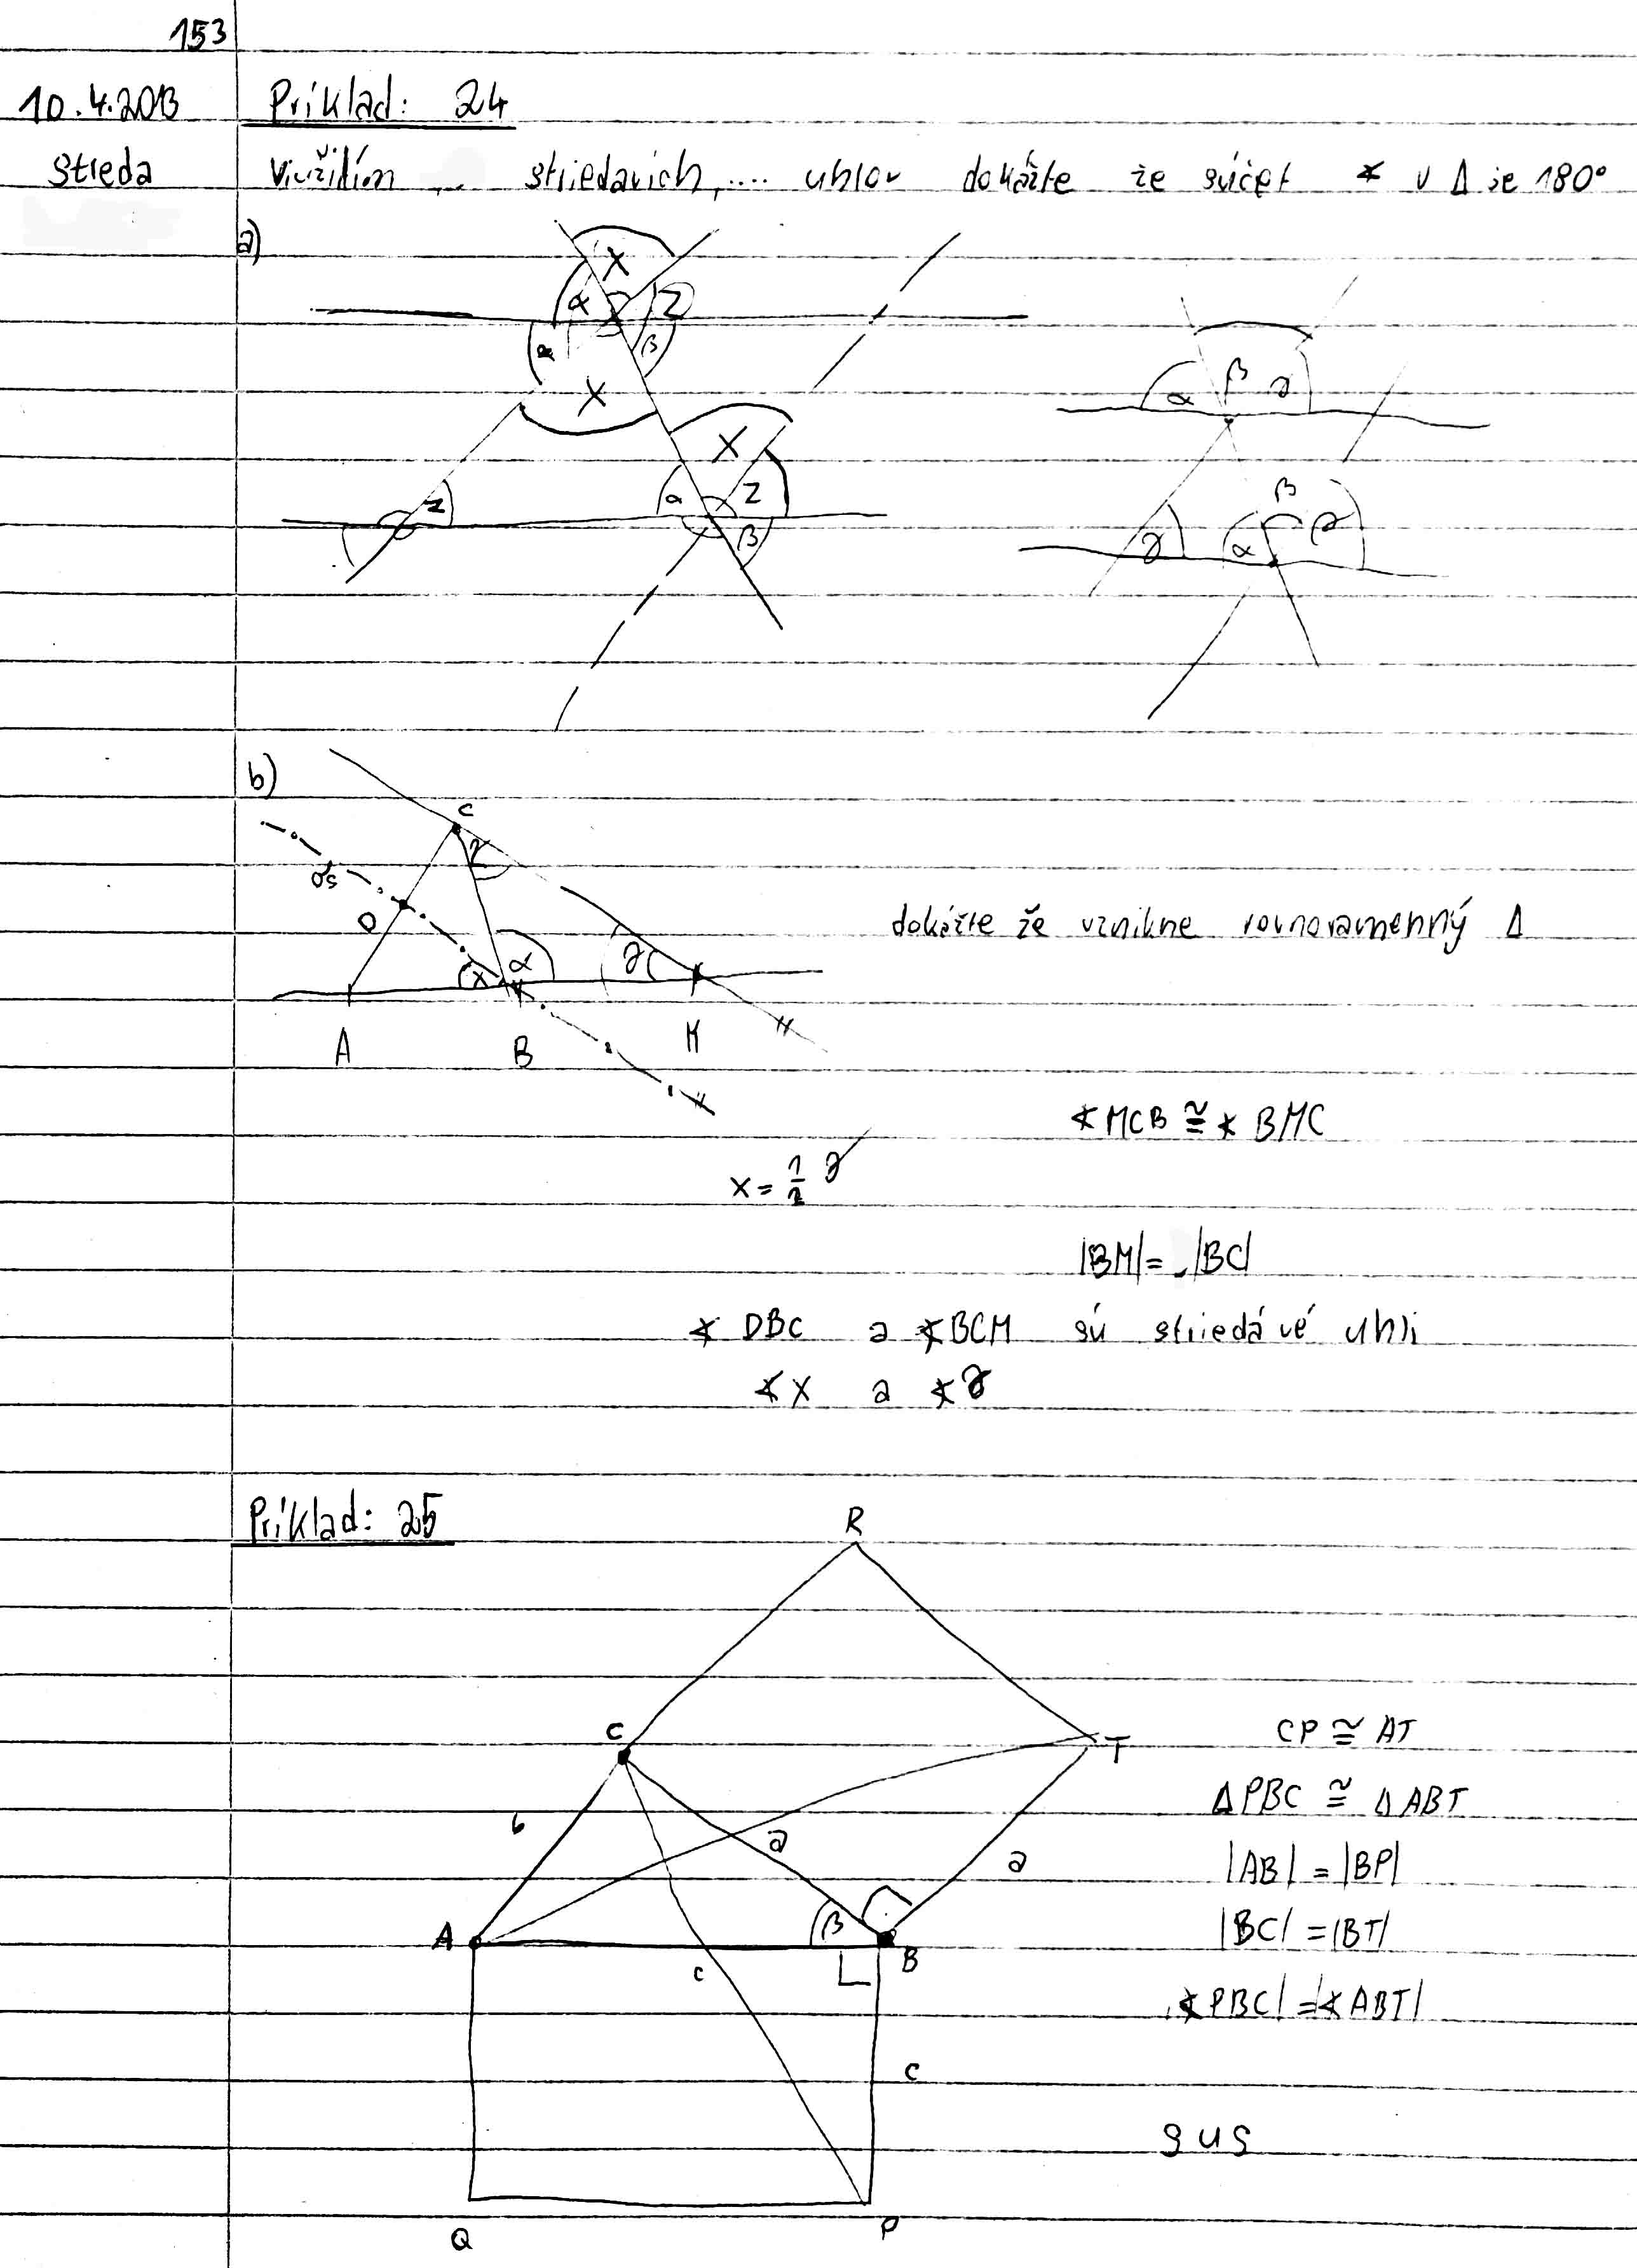 153
10.4.2013 Príklad: 24
Streda Využitím ... striedavích, .... uhlov dokážte že súčet ∢ v Δ je 180°
a)
X
α Z
α β
X
X
Z α Z
β
α β γ
β
γ α γ
b)
C
γ
σs
D
x α γ
A B M
dokážte že vznikne rovnoramenný Δ
∢MCB ≅ ∢BMC
x = 1/2 γ
|BM| = |BC|
∢ DBC a ∢BCM sú striedávé uhli
∢X a ∢γ
Príklad: 25
R
C
T
CP ≅ AT
b
ΔPBC ≅ ΔABT
a
a
|AB| = |BP|
A β B
c
|BC| = |BT|
∢PBC| = |∢ABT|
c
sus
Q P